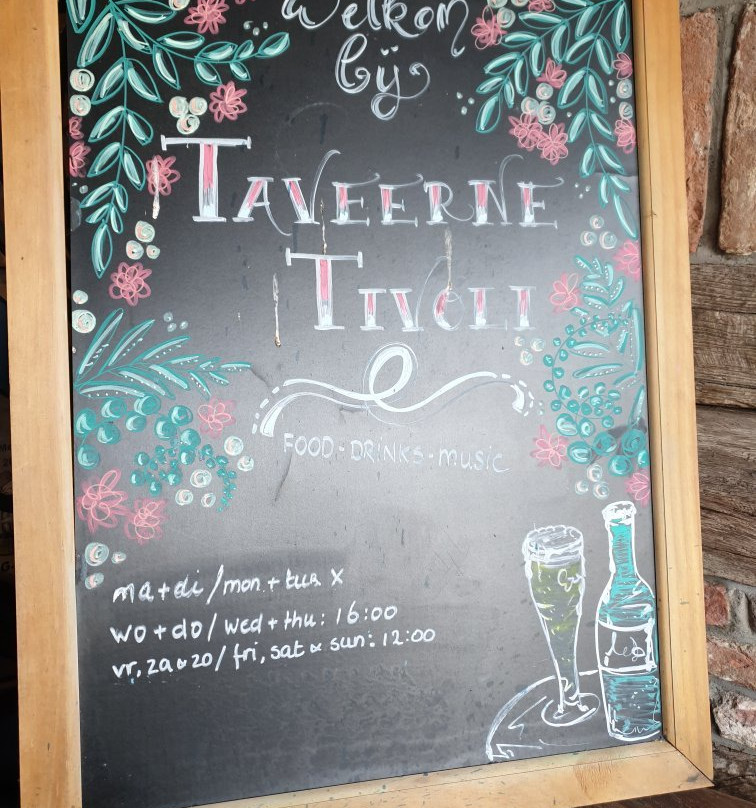 Welkom
bij
TAVEERNE
TIVOLI
FOOD - DRINKS - music
ma + di / mon + tue X
wo + do / wed + thu: 16:00
vr, za & zo / fri, sat & sun: 12:00